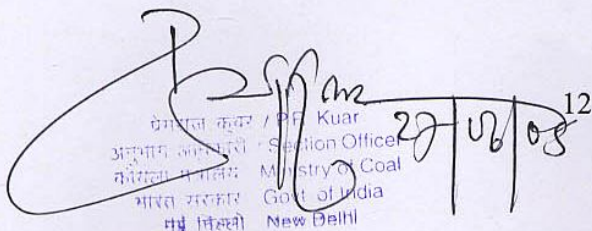 12
प्रेमराज कुवर / P.R. Kuar
अनुभाग अधिकारी / Section Officer
कोयला मंत्रालय Ministry of Coal
भारत सरकार Govt. of India
नई दिल्ली New Delhi